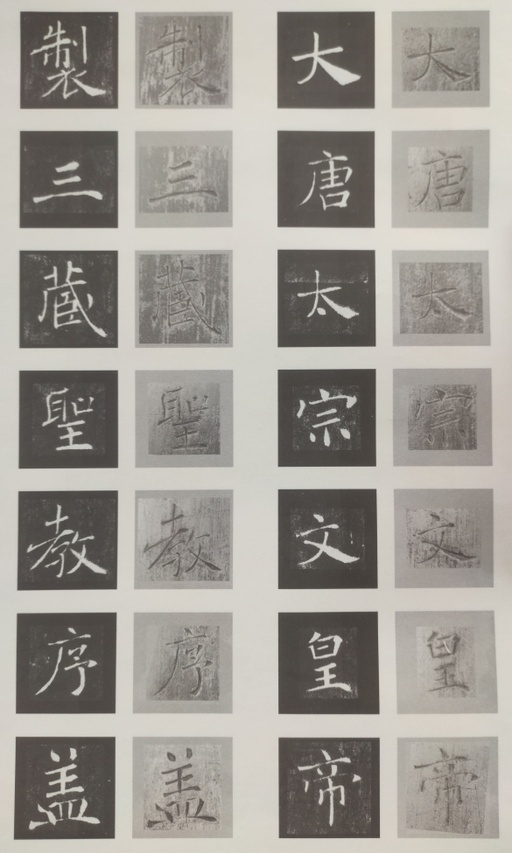 大唐太宗文皇帝
大唐太宗文皇帝
製三藏聖教序盖
製三藏聖教序盖